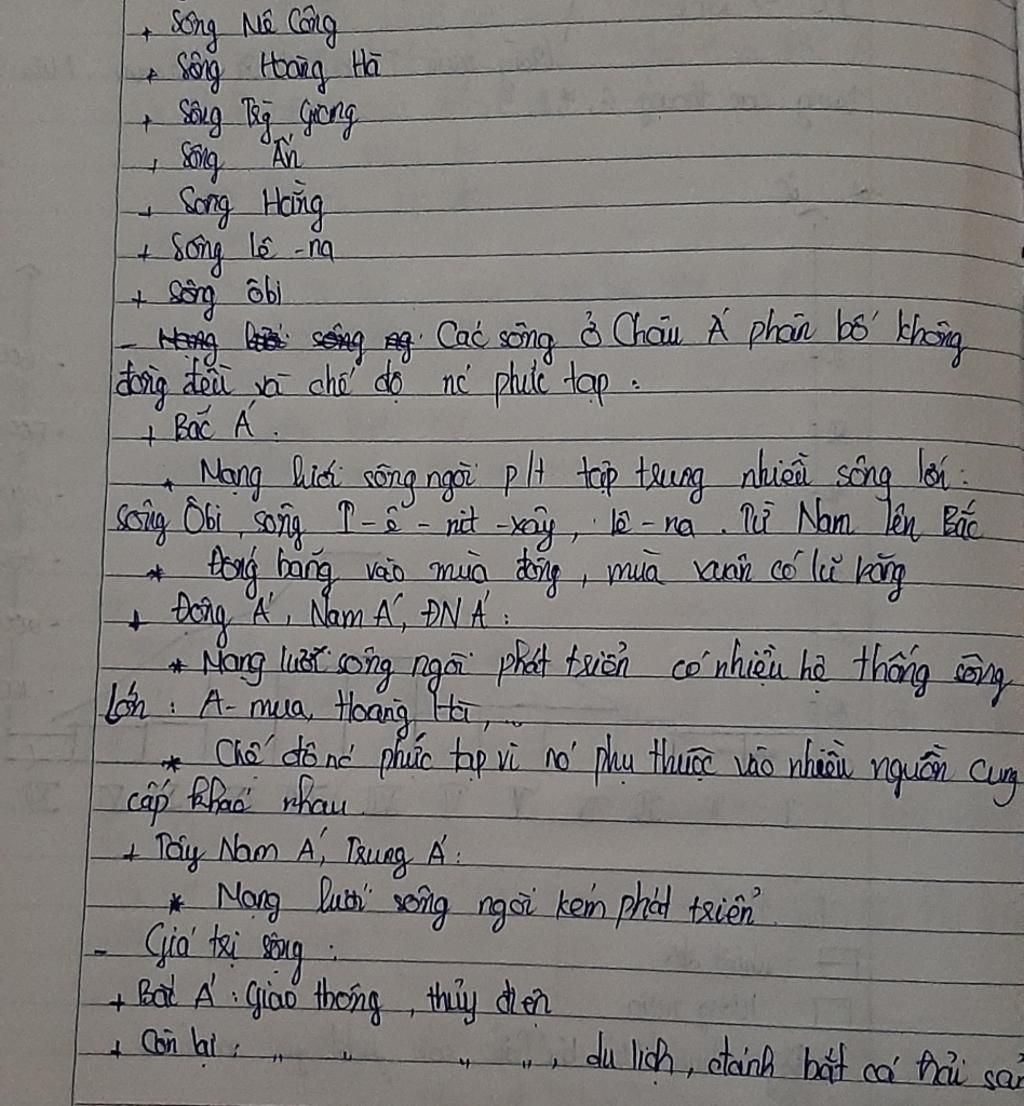 + Sông Mê Công
+ Sông Hoàng Hà
+ Sông Trg Giang
+ Sông Ấn
+ Sông Hằng
+ Sông Lê-na
+ Sông Ôbi
- Các sông ở Châu Á phân bố không
đồng đều và chế độ nc phức tạp:
+ Bắc Á:
* Mạng lưới sông ngòi pht tập trung nhiều sông lớn:
sông Ôbi, sông I-ê-nít-xây, Lê-na. Từ Nam lên Bắc
* Đóng băng vào mùa đông, mùa xuân có lũ băng
+ Đông Á, Nam Á, ĐN Á:
* Mạng lưới sông ngòi phát triển có nhiều hệ thống sông
lớn: A-mua, Hoàng Hà, ...
* Chế độ nc phức tạp vì nó phụ thuộc vào nhiều nguồn cung
cấp khác nhau.
+ Tây Nam Á, Trung Á:
* Mạng lưới sông ngòi kém phát triển
- Giá trị sông:
+ Bắc Á: Giao thông, thủy điện
+ Còn lại: " " " ", du lịch, đánh bắt cá hải